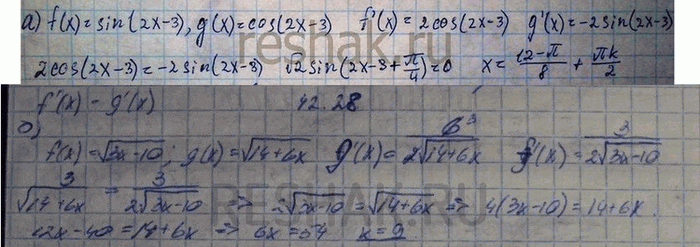 а) f(x)=sin(2x-3), g(x)=cos(2x-3) f'(x)=2cos(2x-3) g'(x)=-2sin(2x-3)
2cos(2x-3)=-2sin(2x-3) √2sin(2x-3+π/4)=0 x=(12-π)/8+πk/2
f'(x) - g'(x) 42.28
б)
f(x)=√(3x-10); g(x)=√(14+6x) g'(x)=6³/(2√(14+6x)) f'(x)=3/(2√(3x-10))
3/√(14+6x)=3/(2√(3x-10)) => 2√(3x-10)=√(14+6x) => 4(3x-10)=14+6x.
12x-40=14+6x => 6x=54 x=9
reshak.ru
RESHAK.RU